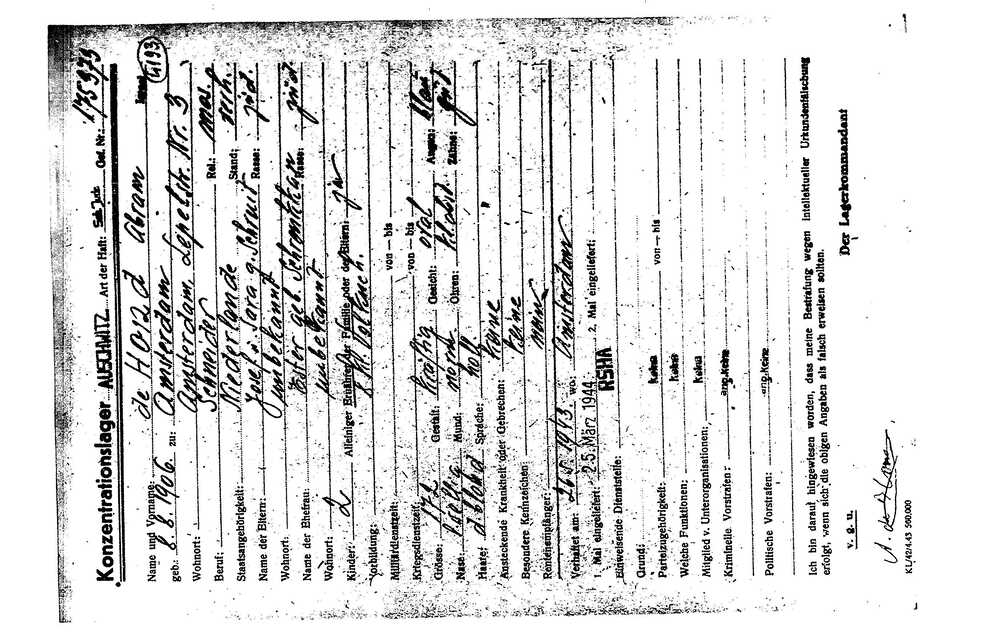 Konzentrationslager AUSCHWITZ Art der Haft: Sch Jude Gef. Nr.: 175975
4193
Name und Vorname: de Hond Abram
geb.: 8.8.1906. zu: Amsterdam
Wohnort: Amsterdam, Lepelstr. Nr. 3
Beruf: Schneider Rel.: mos.
Staatsangehörigkeit: Niederlande Stand: verh.
Name der Eltern: Josef u. Sara g. Schruit Rasse: jüd
Wohnort: unbekannt
Name der Ehefrau: Ester geb. Rasse: jüd.
Wohnort: unbekannt
Kinder: 2 Alleiniger Ernährer der Familie oder der Eltern: ja
Vorbildung: 8 Kl.
Militärdienstzeit: von — bis
Kriegsdienstzeit: von — bis
Grösse: 172 Gestalt: kräftig Gesicht: oval Augen: blau
Nase: Mund: norm. Ohren: Zähne: gut
Haare: d. blond Sprache: holl
Ansteckende Krankheit oder Gebrechen: keine
Besondere Kennzeichen: keine
Rentenempfänger: nein
Verhaftet am: 26.5.1943 wo: Amsterdam
1. Mal eingeliefert: 25. März 1944 2. Mal eingeliefert:
Einweisende Dienststelle: RSHA
Grund:
Parteizugehörigkeit: keine von — bis
Welche Funktionen: keine
Mitglied v. Unterorganisationen: keine
Kriminelle Vorstrafen: ang. keine
Politische Vorstrafen: ang. keine
Ich bin darauf hingewiesen worden, dass meine Bestrafung wegen intellektueller Urkundenfälschung
erfolgt, wenn sich die obigen Angaben als falsch erweisen sollten.
v. g. u. Der Lagerkommandant
KL/42/4.43 500.000